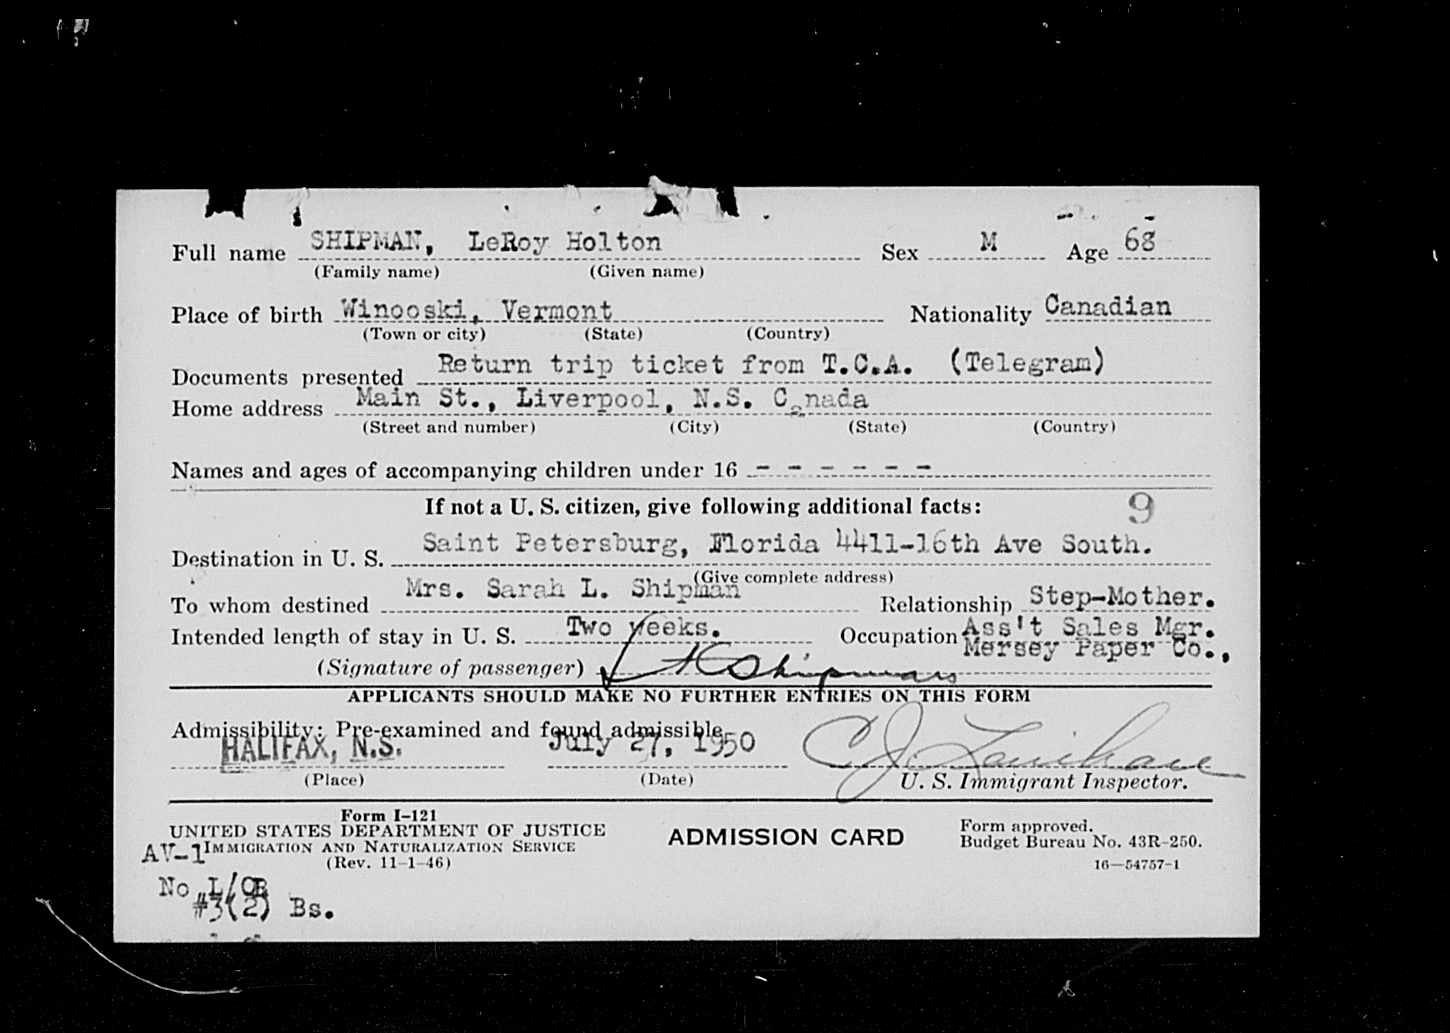 Full name SHIPMAN, LeRoy Holton Sex M Age 68
(Family name) (Given name)
Place of birth Winooski, Vermont Nationality Canadian
(Town or city) (State) (Country)
Documents presented Return trip ticket from T.C.A. (Telegram)
Home address Main St., Liverpool, N.S. Canada
(Street and number) (City) (State) (Country)
Names and ages of accompanying children under 16 - - - - - -
If not a U. S. citizen, give following additional facts: 9
Destination in U. S. Saint Petersburg, Florida 4411-16th Ave South.
(Give complete address)
To whom destined Mrs. Sarah L. Shipman Relationship Step-Mother.
Intended length of stay in U. S. Two weeks. Occupation Ass't Sales Mgr.
Mersey Paper Co.,
(Signature of passenger) Shipman
APPLICANTS SHOULD MAKE NO FURTHER ENTRIES ON THIS FORM
Admissibility: Pre-examined and found admissible
HALIFAX, N.S. July 27, 1950
(Place) (Date) U. S. Immigrant Inspector.
Form I-121
UNITED STATES DEPARTMENT OF JUSTICE
AV-1 IMMIGRATION AND NATURALIZATION SERVICE
(Rev. 11-1-46)
ADMISSION CARD
Form approved.
Budget Bureau No. 43R-250.
16—54757-1
No L/CB
#3(2) Bs.